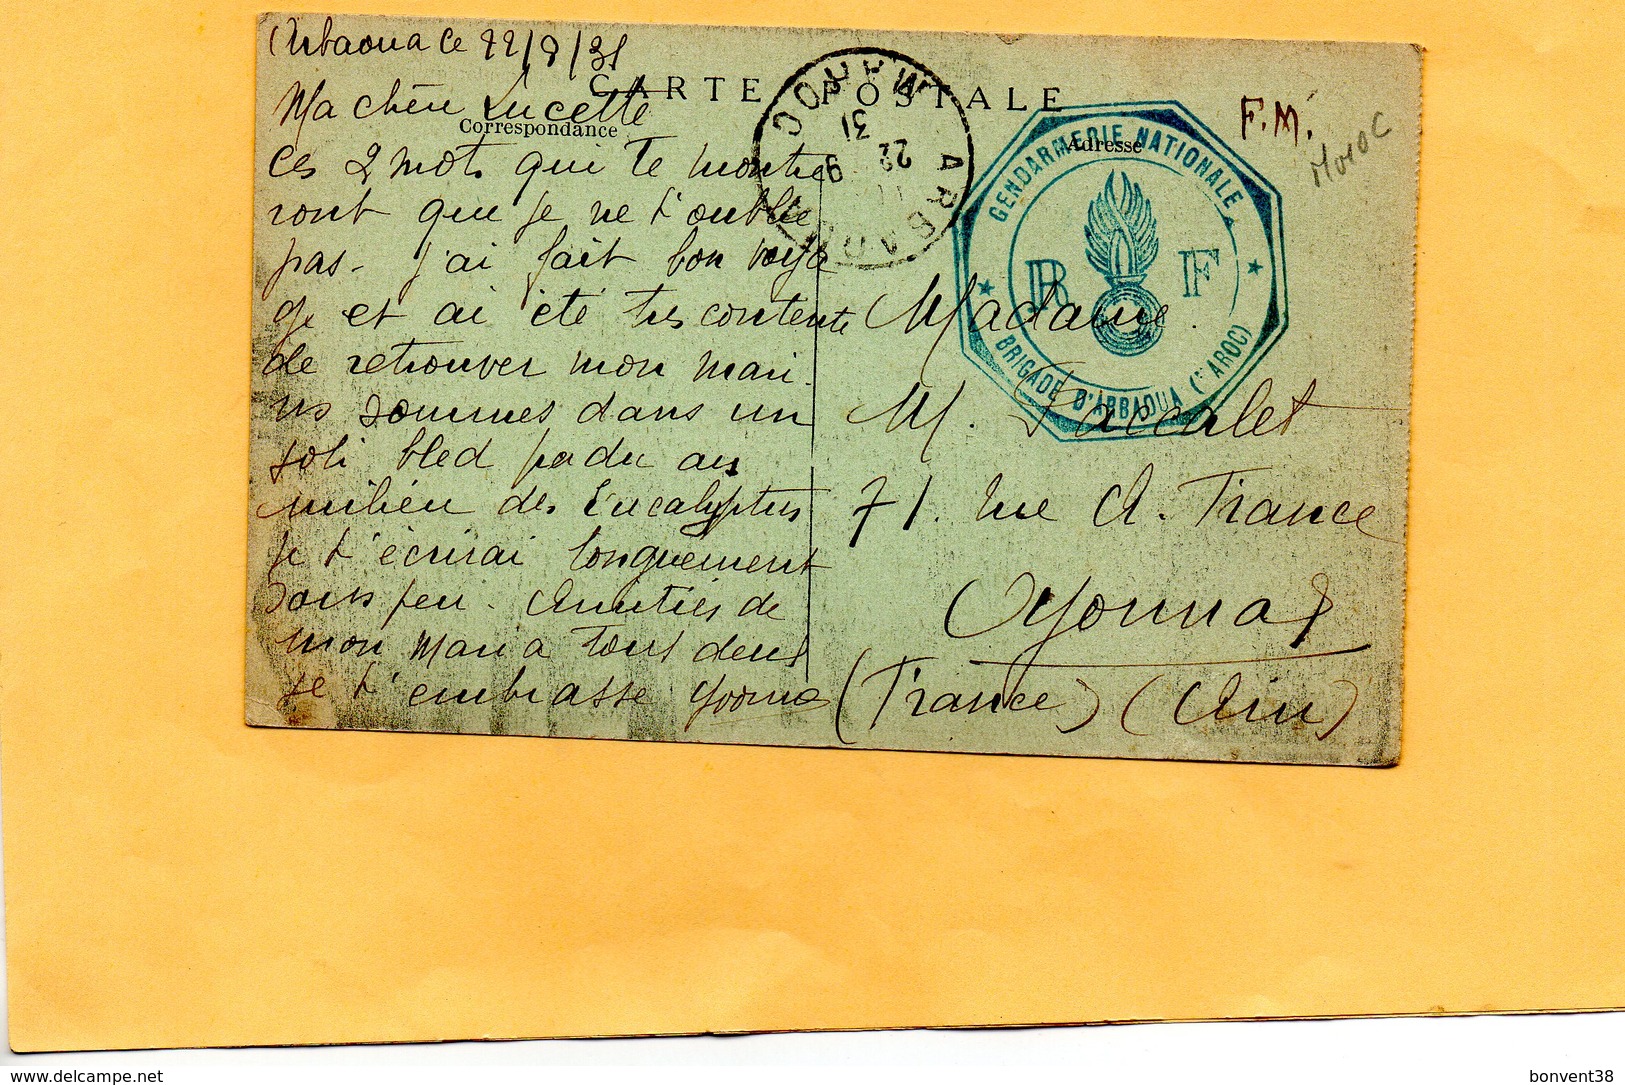 Arbaoua le 22/9/31
CARTE POSTALE
Ma chère Lucette
Correspondance
Adresse
F.M.
Maroc
ces 2 mots qui te montre
ront que je ne t'oublie
pas. j'ai fait bon voya
ge et ai été très contente
de retrouver mon mari.
ns sommes dans un
joli bled perdu au
milieu des Eucalyptus
je t'écrirai longuement
sous peu. Amitiés de
mon mari a tous deux
je t'embrasse Yvonne
MAROC
ARBAOUA
22
9
31
GENDARMERIE NATIONALE
RF
BRIGADE D'ARBAOUA (MAROC)
Madame
M. Fucalet
71. rue A. France
Oyonnax
(France) (Ain)
delcampe.net
bonvent38